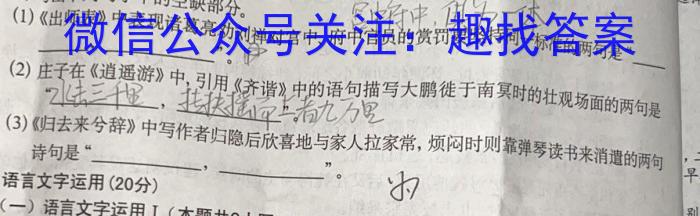 的空缺部分。
(1)《出师表》中表现诸葛亮劝刘禅对宫中、府中官员的赏罚要坚持同一标准的两句是
微信公众号关注：趣找答案
(2) 庄子在《逍遥游》中,引用《齐谐》中的语句描写大鹏徙于南冥时的壮观场面的两句是
三千里，者九万里
(3)《归去来兮辞》中写作者归隐后欣喜地与家人拉家常,烦闷时则靠弹琴读书来消遣的两句
诗句是“，”。
语言文字运用(20分)
(一) 语言文字运用Ⅰ(本题共
早
别